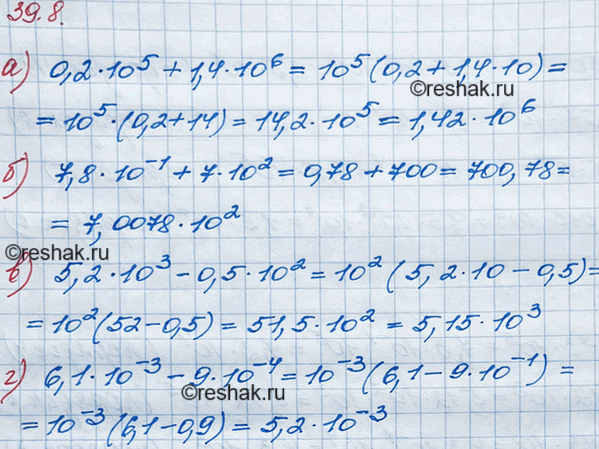 39.8.
а) 0,2·10⁵ + 1,4·10⁶ = 10⁵(0,2 + 1,4·10) =
©reshak.ru
= 10⁵·(0,2+14) = 14,2·10⁵ = 1,42·10⁶
б) 7,8·10⁻¹ + 7·10² = 0,78 + 700 = 700,78 =
= 7,0078·10²
©reshak.ru
в) 5,2·10³ − 0,5·10² = 10²(5,2·10 − 0,5) =
= 10²(52−0,5) = 51,5·10² = 5,15·10³
г) 6,1·10⁻³ − 9·10⁻⁴ = 10⁻³(6,1 − 9·10⁻¹) =
©reshak.ru
= 10⁻³(6,1−0,9) = 5,2·10⁻³